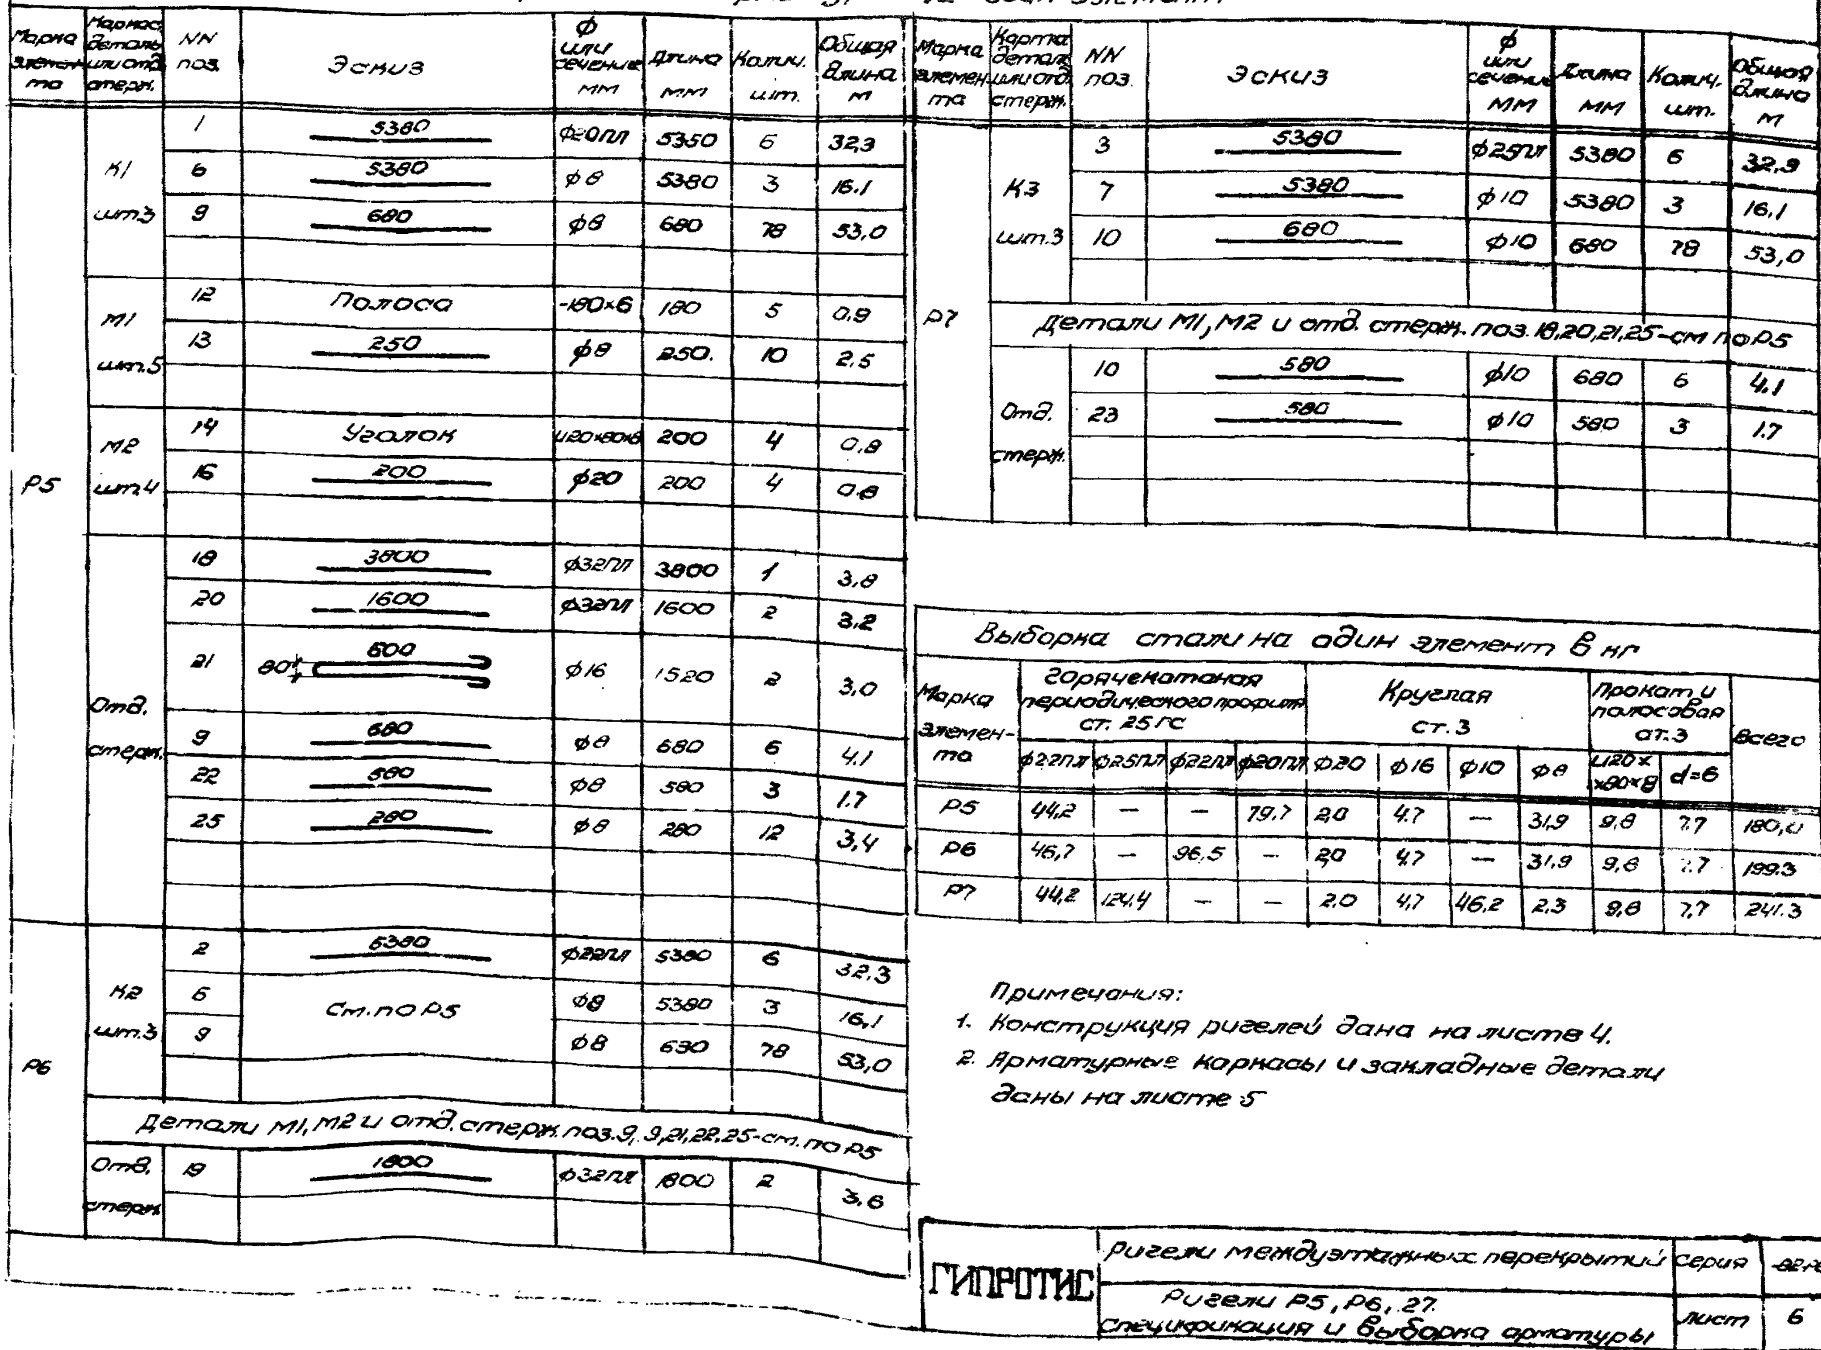 Марка элемента | Каркас деталь или отд. стерж. | NN поз. | Эскиз | ф или сечение мм | Длина мм | Колич. шт. | Общая длина м
Р5 | К1 шт.3 | 1 | 5380 | ф20пл | 5350 | 6 | 32,3
6 | 5380 | ф8 | 5380 | 3 | 16.1
9 | 680 | ф8 | 680 | 78 | 53,0
М1 шт.5 | 12 | Полоса | -180×6 | 180 | 5 | 0.9
13 | 250 | ф8 | 250. | 10 | 2.5
М2 шт.4 | 14 | Уголок | L120×80×8 | 200 | 4 | 0.8
16 | 200 | ф20 | 200 | 4 | 0.8
Отд. стерж. | 18 | 3800 | ф32пл | 3800 | 1 | 3.8
20 | 1600 | ф32пл | 1600 | 2 | 3.2
21 | 80 600 | ф16 | 1520 | 2 | 3,0
9 | 680 | ф8 | 680 | 6 | 4.1
22 | 580 | ф8 | 580 | 3 | 1.7
25 | 280 | ф8 | 280 | 12 | 3,4
Р6 | К2 шт.3 | 2 | 5380 | ф22пл | 5380 | 6 | 32.3
6 | См. по Р5 | ф8 | 5380 | 3 | 16,1
9 | ф8 | 630 | 78 | 53,0
Детали М1, М2 и отд. стерж. поз. 9, 9,21,22,25-см. по Р5
Отд. стерж. | 19 | 1800 | ф32пл | 1800 | 2 | 3.6
Марка элемента | Карта деталь или отд. стерж. | NN поз. | Эскиз | ф или сечение мм | Длина мм | Колич. шт. | Общая длина м
Р7 | К3 шт.3 | 3 | 5380 | ф25пл | 5380 | 6 | 32.3
7 | 5380 | ф10 | 5380 | 3 | 16,1
10 | 680 | ф10 | 680 | 78 | 53,0
Детали М1, М2 и отд. стерж. поз. 18,20,21,25-см по Р5
Отд. стерж. | 10 | 580 | ф10 | 680 | 6 | 4.1
23 | 580 | ф10 | 580 | 3 | 1.7
Выборка стали на один элемент в кг
Марка элемента | Горячекатаная периодического профиля ст. 25ГС | Круглая ст.3 | Прокат и полосовая ст.3 | Всего
ф22пл | ф25пл | ф22пл | ф20пл | ф20 | ф16 | ф10 | ф8 | L120××80×8 | d=6
Р5 | 44,2 | — | — | 79.7 | 2.0 | 4.7 | — | 31.9 | 9.8 | 7.7 | 180,0
Р6 | 46,7 | — | 96.5 | — | 2.0 | 4.7 | — | 31.9 | 9,8 | 7.7 | 199.3
Р7 | 44,2 | 124.4 | — | — | 2.0 | 4,7 | 46,2 | 2.3 | 9,8 | 7,7 | 241.3
Примечания:
1. Конструкция ригелей дана на листе 4.
2. Арматурные каркасы и закладные детали
даны на листе 5
ГИПРОТИС
Ригели междуэтажных перекрытий
серия
Ригели Р5, Р6, 27.
спецификация и выборка арматуры
лист 6